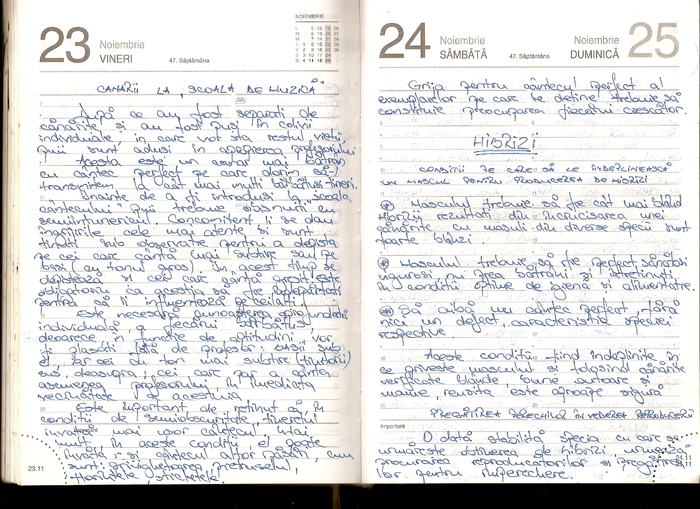 23 Noiembrie
VINERI
47. Săptămâna
NOIEMBRIE
CANARII LA "ŞCOALA DE MUZICĂ"
După ce au fost separați de
canărițe și au fost puși în colivii
individuale în care vor sta restul vieții,
puii sunt aduși în apropierea profesorului.
Acesta este un canar mai bătrân
cu cântec perfect pe care dorim să-l
transmitem la cât mai mulți bărbătuși tineri.
Înainte de a fi introduși la școala
cântecului puii trebuie obișnuiți cu
semiîntunericul. Concomitent li se dau
îngrijirile cele mai atente și sunt
ținuți sub observație pentru a depista
pe cei care cântă mai subțire sau pe
bași (au tonul gros). În acest timp se
depistează și cei care cântă greșit este
obligatoriu ca aceștia să fie îndepărtați
pentru a nu îi influențeaza pe ceilalți.
Este necesară cunoașterea aprofundată
individuală a fiecărui bărbătuș,
deoarece în funcție de aptitudini vor
fi plasați față de profesor, bașii sub
el, iar cei cu ton mai subțire (tenorii)
sus deasupra, cei care par a cânta
asemenea profesorului, în imediata
vecinătate a acestuia
Este important de reținut că în
condiții de semiobscuritate tineretul
învață mai ușor cântecul. Mai
mult în aceste condiții el poate
învăța și cântecul altor păsări, cum
sunt privighetoarea, pietruselul,
florintele, sticletele.
23.11
24 Noiembrie
SÂMBĂTĂ
47. Săptămâna
Noiembrie
DUMINICĂ 25
Grija pentru cântecul perfect al
exemplarelor pe care le deține trebuie să
constituie preocuparea fiecărui crescător.
HIBRIZI
CONDIȚII PE CARE SĂ LE ÎNDEPLINEASCĂ
UN MASCUL PENTRU PRODUCEREA DE HIBRIZI
Masculul trebuie să fie cât mai blând
Hibrizii rezultați din încrucișarea unei
canărițe cu masculi din diverse specii sunt
foarte blânzi.
Masculul trebuie să fie perfect sănătos
viguroși nu prea bătrâni și întreținuți
în condiții optime de igienă și alimentație.
Să aibă un cântec perfect, fără
nici un defect, caracteristic speciei
respective
Aceste condiții fiind îndeplinite în
ce privește masculul și folosind canărițe
verificate blânde, bune ouătoare și
mame, reușita este aproape sigură
PREGĂTIREA PERECHILOR ÎN VEDEREA REPRODUCERII
Important
O dată stabilită specia cu care se
urmărește obținerea de hibrizi, urmează
procurarea reproducătorilor și pregătirea
lor pentru împerechere.
24.11
25.11